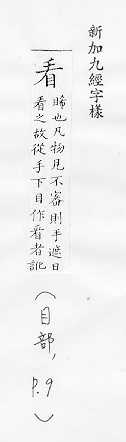 新加九經字樣
看
睎也凡物見不審則手遮目
看之故從手下目作看者訛
(目部,
P.9)